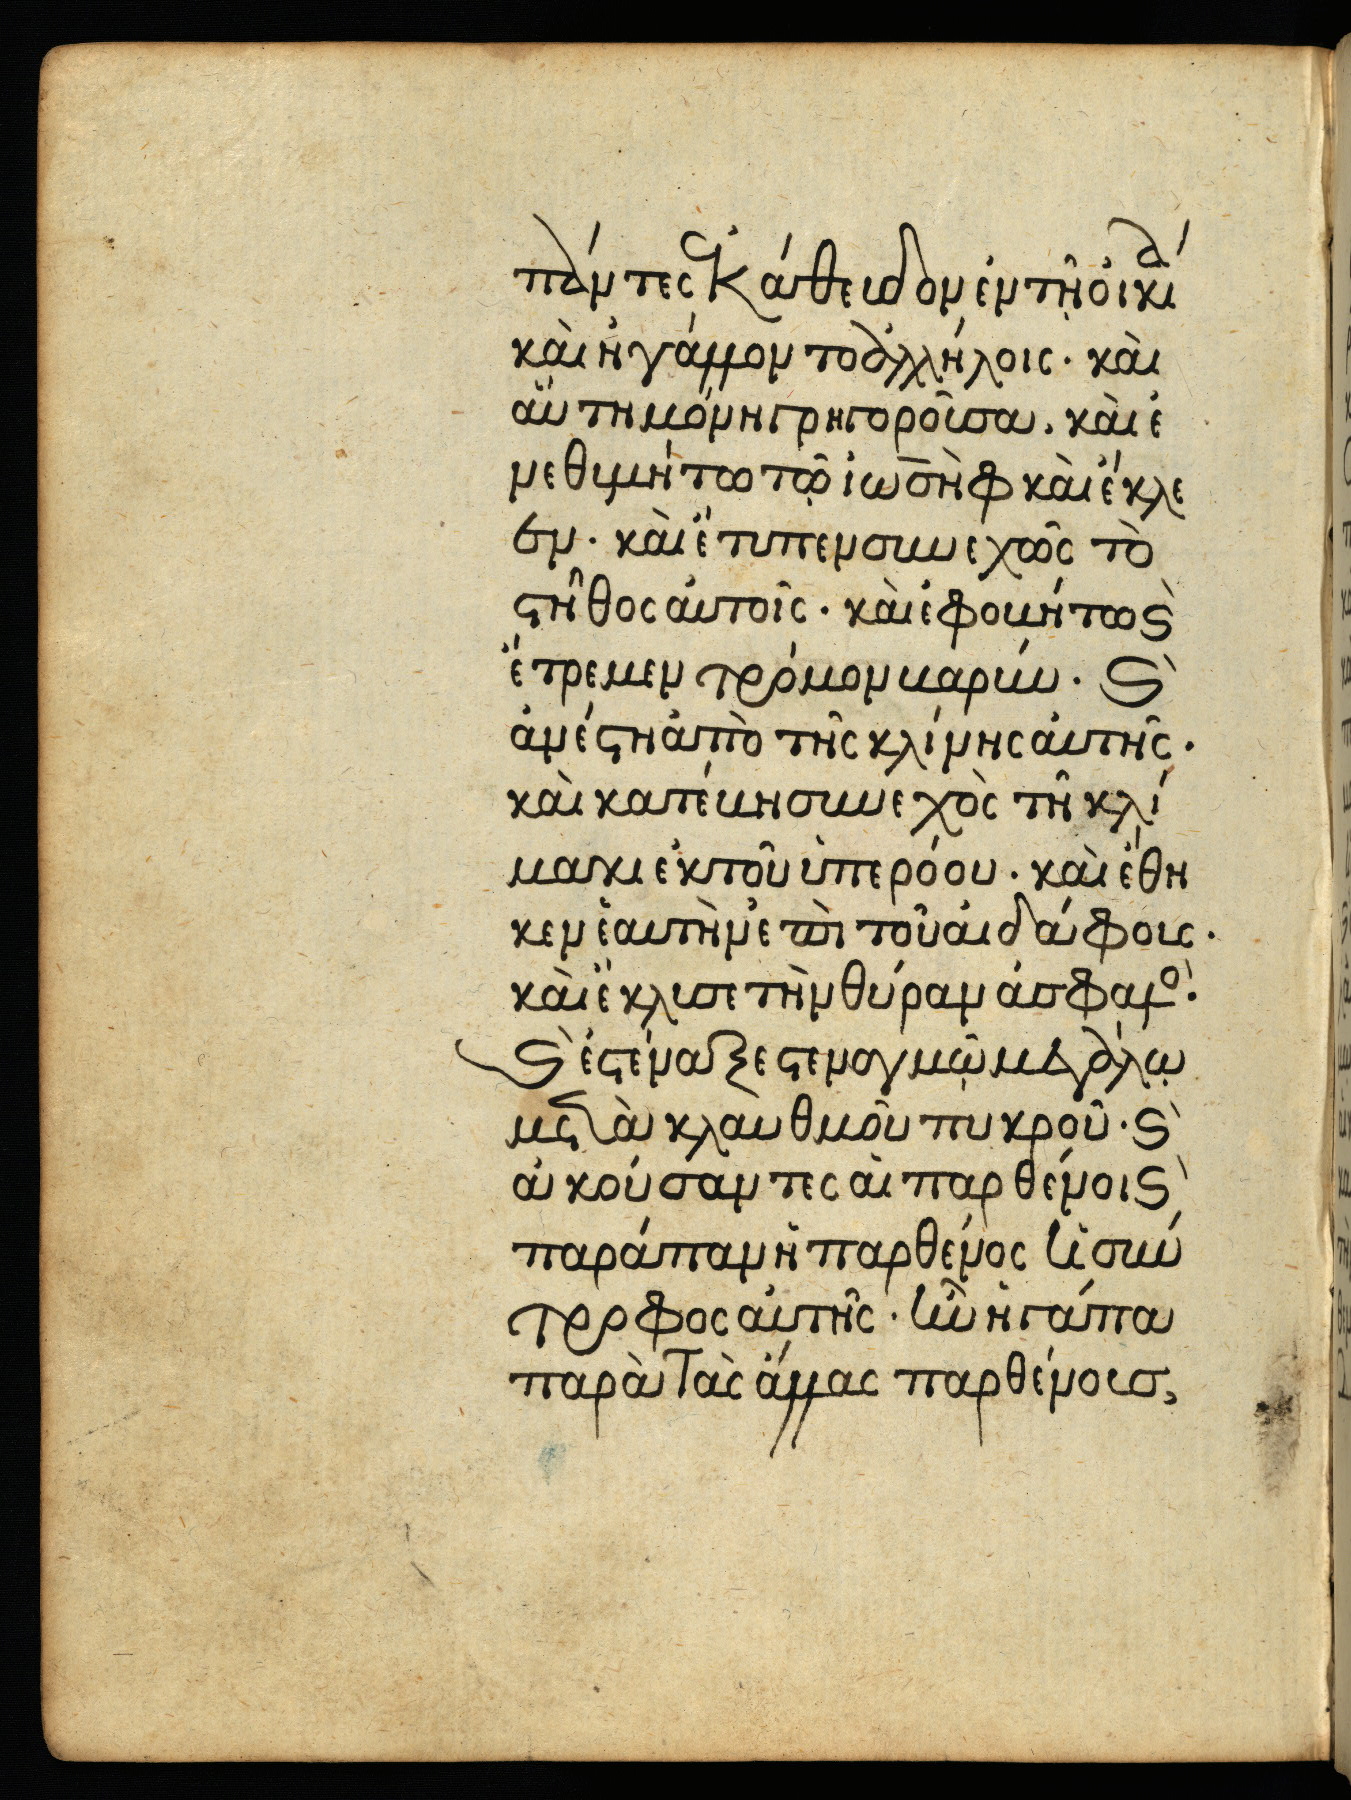 πάντες κάθειδον ἐν τῆ οἰκία
καὶ ἠγάλλοντο ἀλλήλοις · καὶ
αὕτη μόνη γρηγοροῖσα . καὶ ἐ
νεθιμήτω τῶ ἰωσὴφ καὶ ἔκλε
εν · καὶ ἔτυπεν συνεχῶς τὸ
στῆθος αὐτοῖς · καὶ ἐφοβήτω καὶ
ἔτρεμεν τρόμον βαρύν · καὶ
ἀνέστη ἀπὸ τῆς κλίνης αὐτῆς ·
καὶ κατέβη συνεχὸς τῆ κλί
μακι ἐκ τοῦ ὑπερόου · καὶ ἔθη
κεν ἑαυτὴν ἐπὶ τοῦ αἰδάφοις ·
καὶ ἔκλισε τὴν θύραν ἀσφαλὸ ·
καὶ ἐστέναξε στεναγμῶ μεγάλω
μετὰ κλαυθμοῦ πυκροῦ · καὶ
ἀκούσαντες αἱ παρθένοι καὶ
παράπαν ἡ παρθένος ἡ σύν
τροφος αὐτῆς · ἣν ἠγάπα
παρὰ τὰς ἄλλας παρθένοισ,